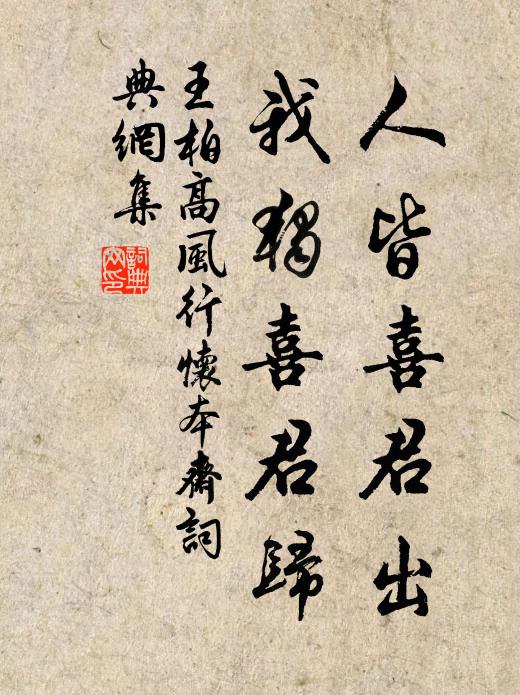 人皆喜君出
我獨喜君歸
王柏高風行懷本齋詞
典網集
詞典